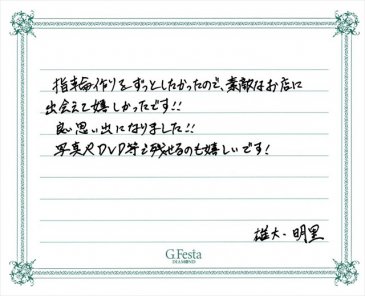 指輪作りをずっとしたかったので、素敵なお店に
出会えて嬉しかったです!!
良い思い出になりました!!
写真やDVD等で残せるのも嬉しいです!
雄大・明里
G.Festa
DIAMOND